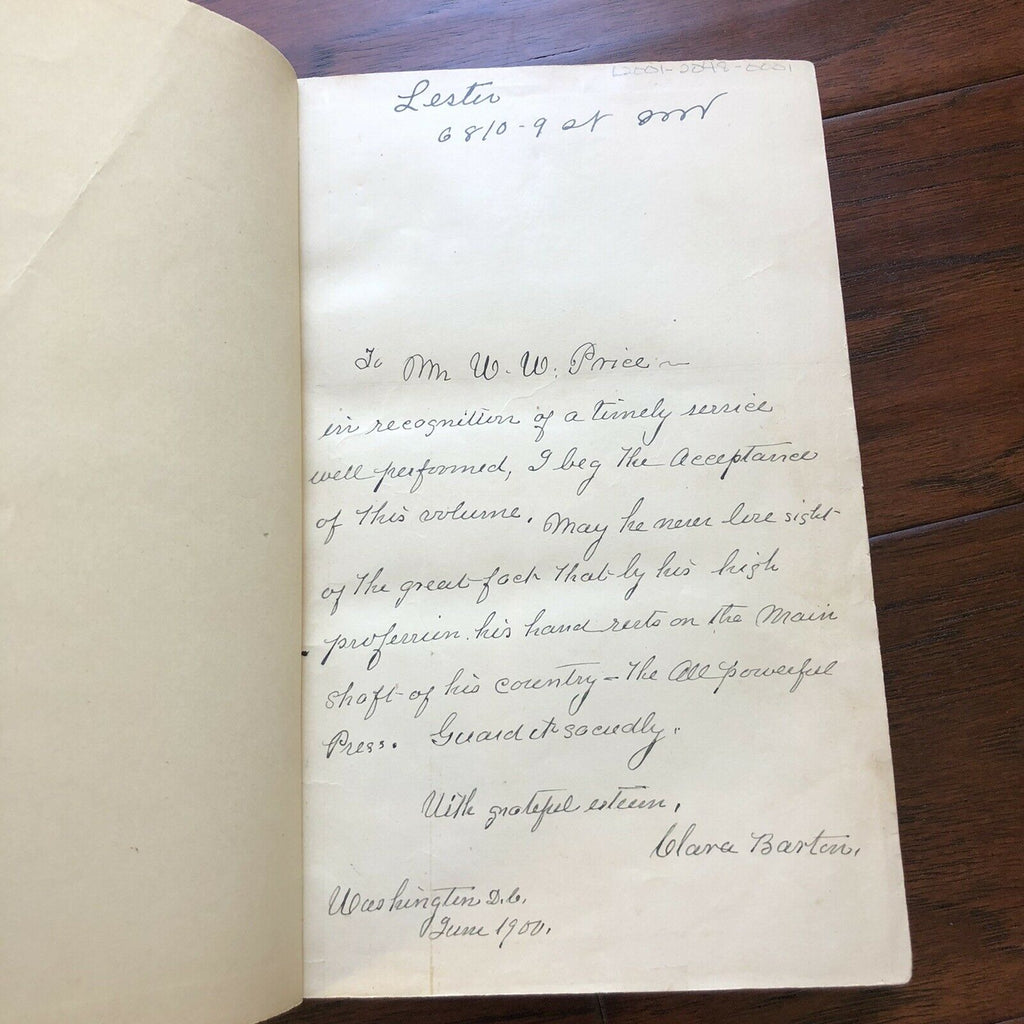 L2001-2049-0001
Lester
6810-9 St NW
To Mr W. W. Price —
in recognition of a timely service
well performed, I beg the Acceptance
of this volume. May he never lose sight
of the great fact that by his high
profession his hand rests on the Main
shaft of his country - the All powerful
Press. Guard it sacredly.
With grateful esteem,
Clara Barton.
Washington D.C.
June 1900.